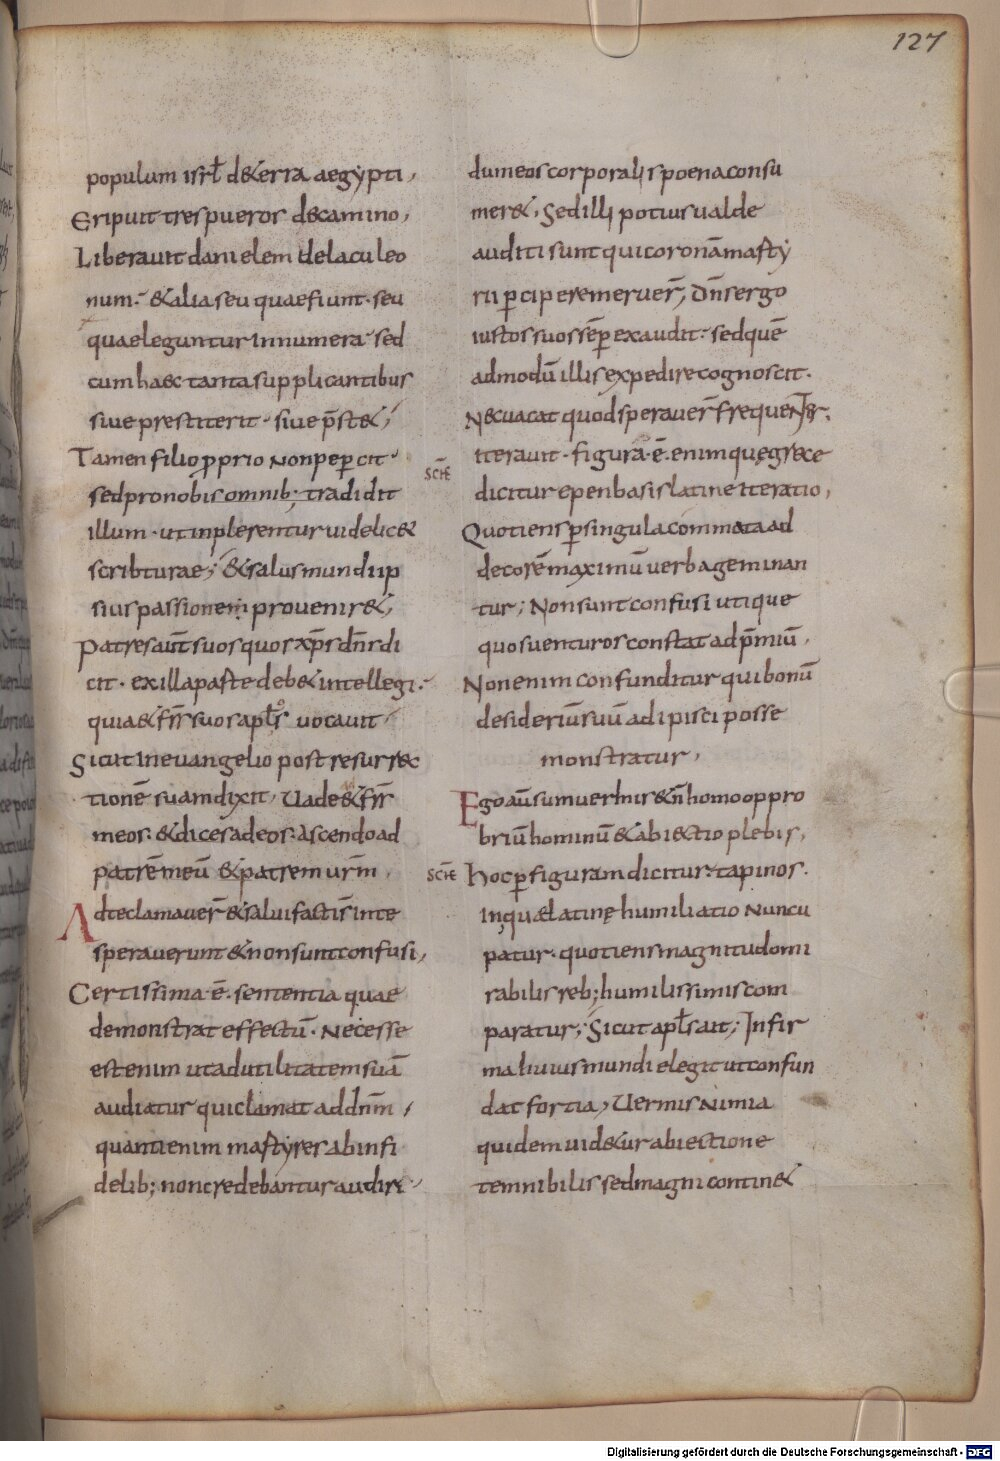 127
populum isrl d&erra aegypti,
Eripuit tres pueros decamino,
Liberauit danielem delacu leo
num. &alia seu quae fiunt. seu
quae leguntur innumera sed
cum haec tanta supplicantibus
siue prestiterit. siue p̄st&;
Tamen filio proprio non pepercit
sed pro nobis omnib; tradidit
illum. ut inplerentur uidelic&
scribturae; & salus mundi ip
sius passionem prouenir&,
Patres aut̄ suos quos xp̄s dn̄s di
cit. ex illa paste deb& intellegi.
quia & fr̄s suos apl̄os uocauit
Sicut in euangelio post resurrec
tionē suam dixit, Uade & fr̄s
meos. & dices ad eos. Ascendo ad
patrē meū & patrem urm̄,
Ad te clamauer̄ & salui facti s̄ in te
sperauerunt & non sunt confusi,
Certissima ē. sententia quae
demonstrat effectū. Necesse
est enim ut ad utilitatem suā
audiatur qui clamat ad dnm̄,
quanti enim martyres ab infi
delib; non credebantur audiri
dum eos corporalis poena consu
mer&, Sed illi potius ualde
auditi sunt qui coronā marty
rii percipere meruer̄, Dn̄s ergo
iustos suos sēp exaudit. sed quē
admodū illis expedire cognoscit.
Nec uacat quod sperauer̄ frequenter.
SCHĒ
iterauit. figura ē. enim quę grece
dicitur epenbasis latine iteratio,
Quotiens per singula commata ad
decorē maximū uerba geminan
tur; Non sunt confusi utique
quos uenturos constat ad p̄miū,
Non enim confunditur qui bonū
desideriū suū adipisci posse
monstratur,
Ego aū sum uermis & n̄ homo oppro
briū hominū & abiectio plebis,
SCHĒ
hoc per figuram dicitur tapinos.
in qua latinę humiliatio nuncu
patur. quotiens magnitudo mi
rabilis reb; humilissimis com
paratur; Sicut apl̄s ait; Infir
ma huius mundi elegit ut confun
dat fortia, Uermis nimia
quidem uid&ur abiectione
temnibilis sed magni contin&
Digitalisierung gefördert durch die Deutsche Forschungsgemeinschaft - DFG